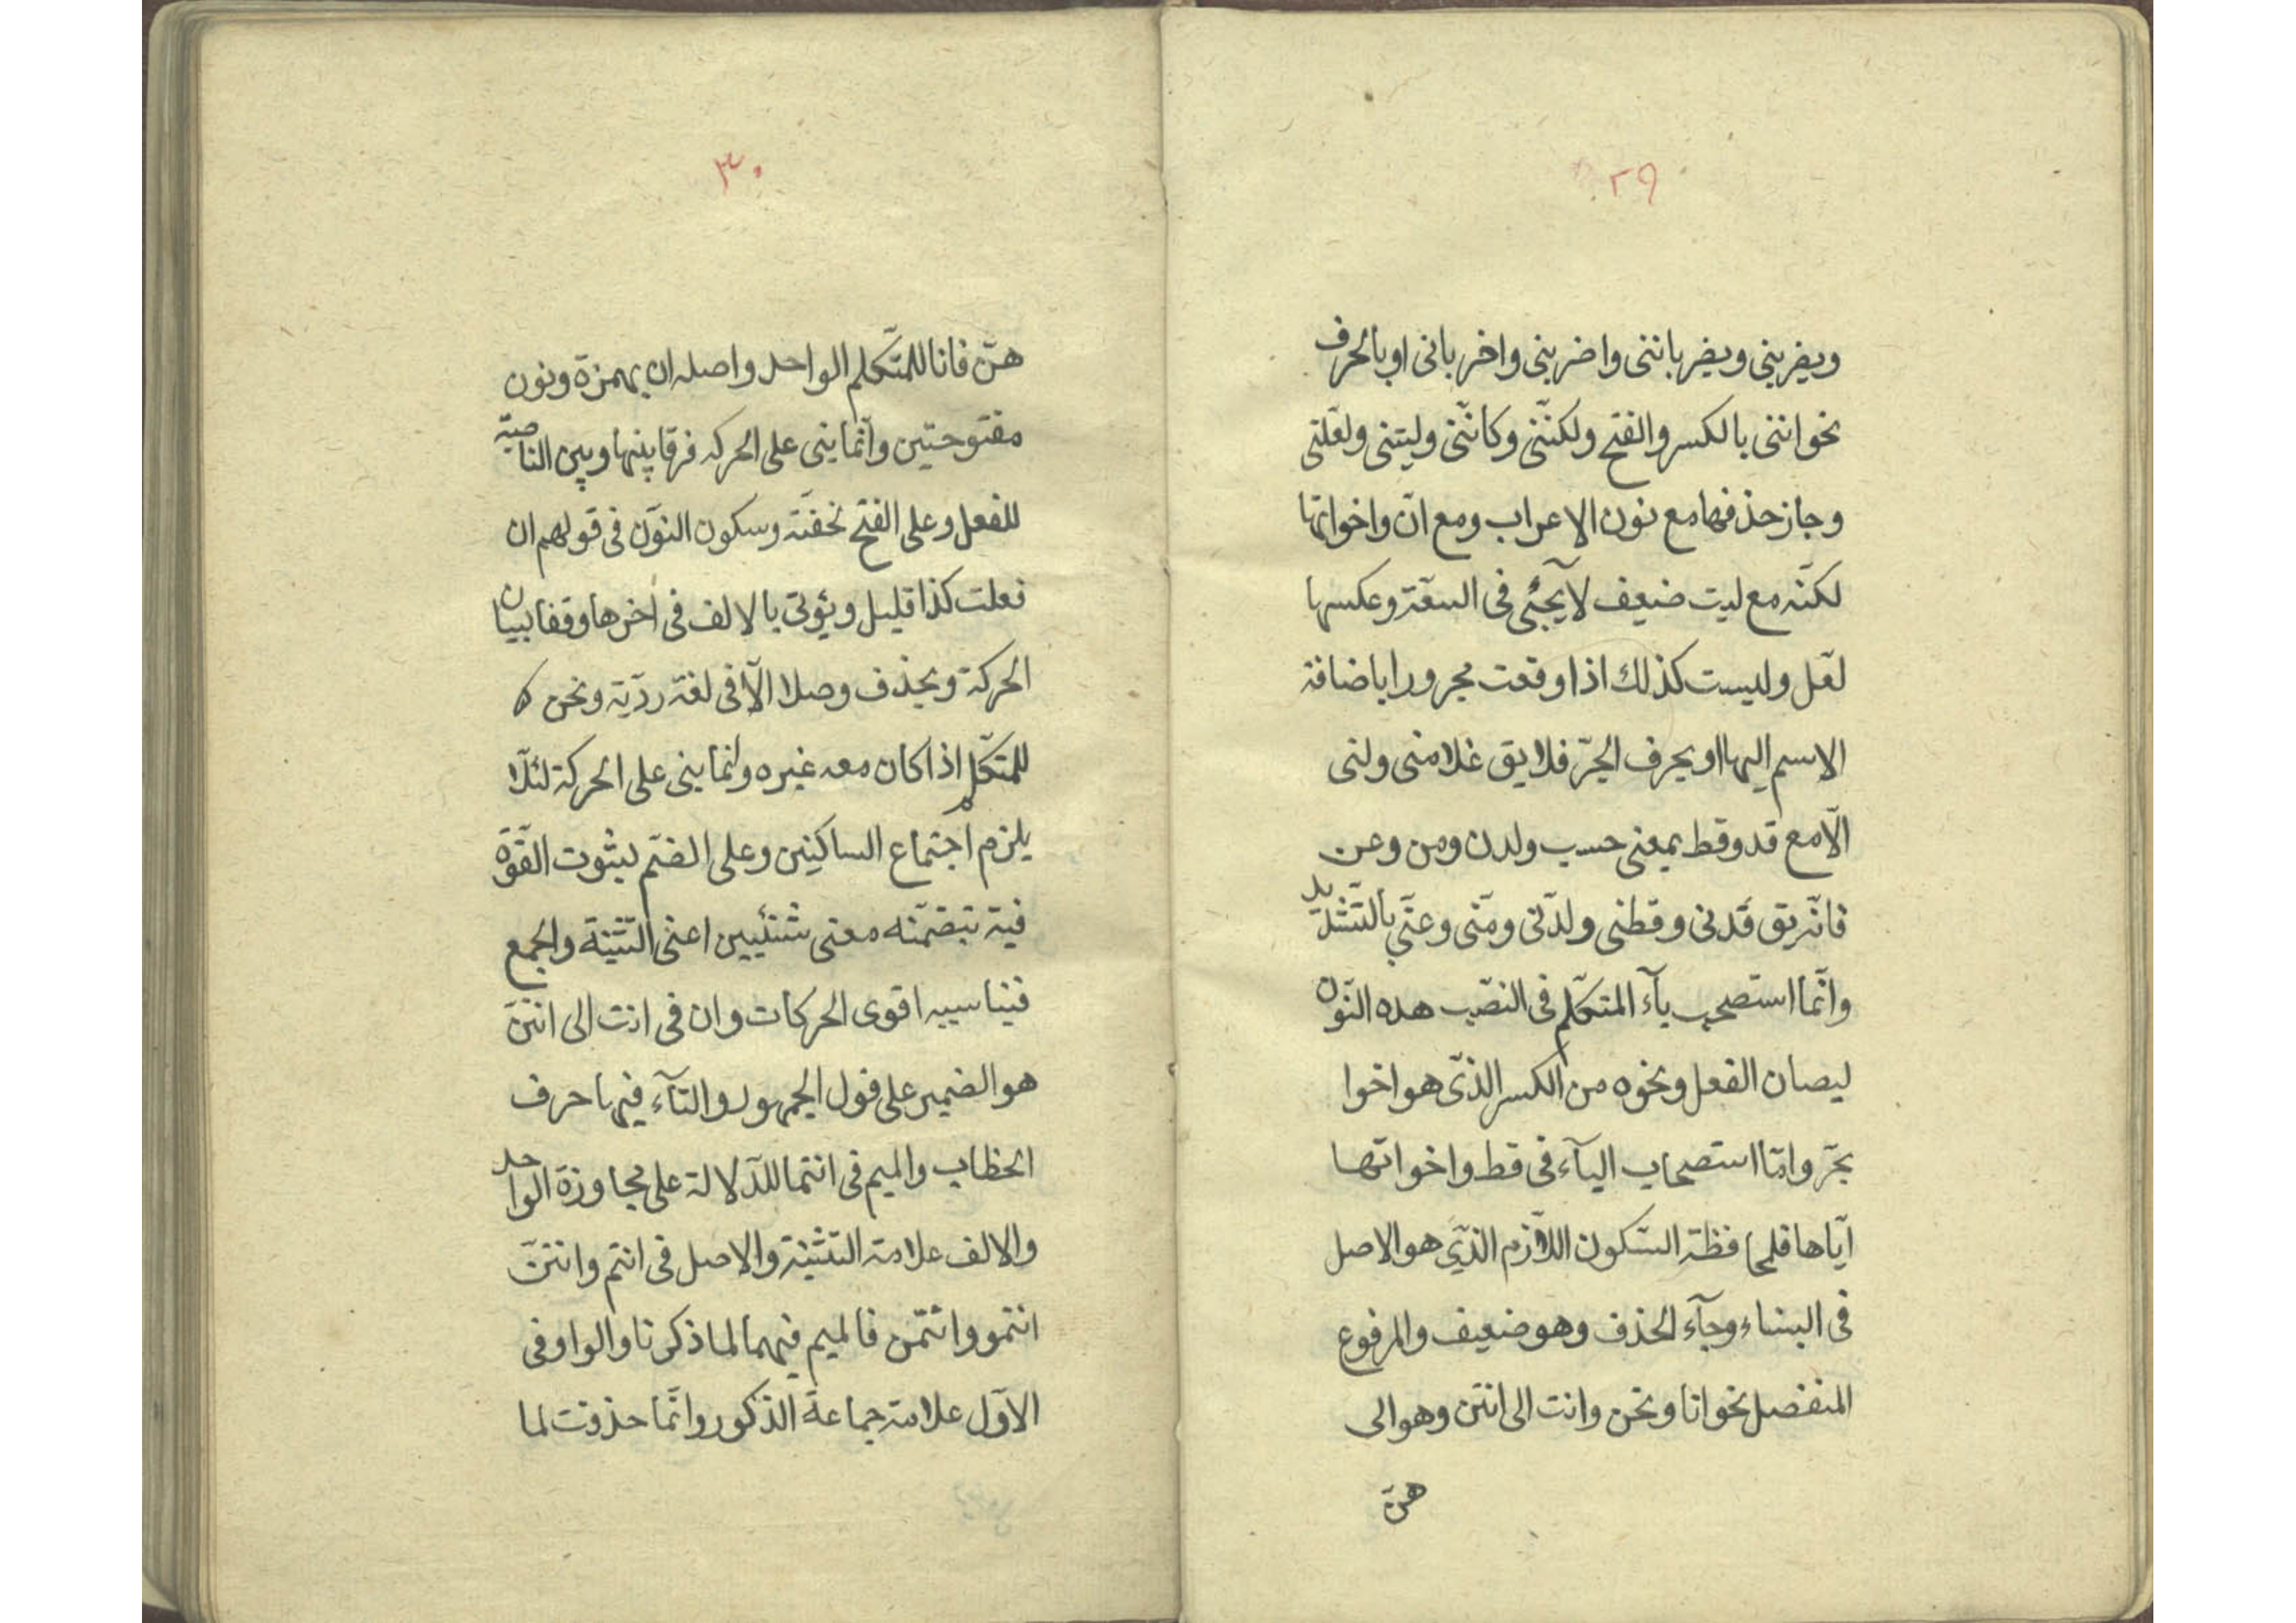 ٢٩
ويضربنى ويضرباننى واضربنى واضربانى او بالحرف
نحو اننى بالكسر والفتح ولكنّنى وكانّنى وليتنى ولعلّنى
وجاز حذفها مع نون الاعراب ومع انّ واخواتها
لكنّه مع ليت ضعيف لا يجئى فى السعّة وعكسها
لعّل وليست كذلك اذا وقعت مجرورا باضافة
الاسم اليها او بحرف الجرّ فلا يق غلامنى ولنى
الّا مع قد وقط بمعنى حسب ولدن ومن وعن
فانّه يق قدنى وقطنى ولدنّى ومنّى وعنّى بالتّشديد
وانّما استصحب يآء المتكلّم فى النصّب هذه النّون
ليصان الفعل ونحوه من الكسر الذّى هو اخوا
بجرّ وامّا استصحاب اليآء فى قط واخواتها
ايّاها فلمحافظة السّكون اللّازم الذّى هو الاصل
فى البناء وجآء الحذف وهو ضعيف والمرفوع
المنفصل نحو انا ونحن وانت الى انتن وهو الى
هنّ
٣٠
هنّ فانا للمتّكلم الواحد واصله ان بهمزة ونون
مفتوحتين وانّما بنى على الحركه فرقا بينها وبين الناصبة
للفعل وعلى الفتح لخفّته وسكون النوّن فى قولهم ان
فعلت كذا قليل ويؤتى بالالف فى اخرها وقفا لبيان
الحركة ويحذف وصلا الّا فى لغة رديّة ونحن
للمتكّلم اذا كان معه غيره وانّما بنى على الحركة لئلّا
يلزم اجتماع الساكنين وعلى الضّم لثبوت القّوة
فيه بتضمّنه معنى شيئيين اعنى التّثنية والجمع
فيناسبه اقوى الحركات وان فى انت الى انتنّ
هو الضمير على قول الجمهور والتآء فيها حرف
الخطاب والميم فى انتما للدّلالة على مجاوزة الواحد
والالف علامة التثنية والاصل فى انتم وانتنّ
انتمو وانتمن فالميم فيهما لما ذكرنا والواو فى
الاوّل علامة جماعة الذّكور وانّما حذفت لما